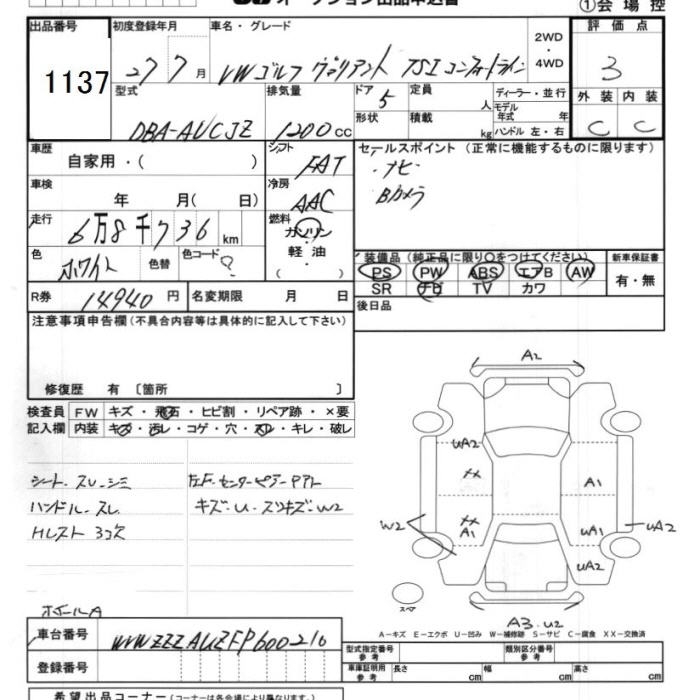 オークション出品申込書
①会場控
出品番号 初度登録年月 車名・グレード 2WD・4WD 評価点
1137 27 7月 VWゴルフ ヴァリアント TSIコンフォートライン 3
型式 排気量 ドア 5 定員 人 ディーラー・並行 外装 内装
モデル年式 年
DBA-AUCJZ 1200cc 形状 積載 kg ハンドル 左・右 C C
車歴 自家用・( ) シフト FAT セールスポイント(正常に機能するものに限ります)
・ナビ
車検 年 月( 日) 冷房 AAC Bカメラ
走行 6万8千736km 燃料 ガソリン・軽油・( )
色 ホワイト 色替 色コード ?
装備品(純正品に限り○をつけてください) 新車保証書
PS PW ABS エアB AW 有・無
SR ナビ TV カワ
R券 14940円 名変期限 月 日 後日品
注意事項申告欄(不具合内容等は具体的に記入して下さい)
修復歴 有 〔箇所 〕
検査員記入欄 FW キズ・飛石・ヒビ割・リペア跡・×要
内装 キズ・汚レ・コゲ・穴・スレ・キレ・破レ
シート・スレ・シミ
ハンドル・スレ
キズ・U・スリキズ・W2
ホイールA
A2
UA2
XX
A1
W2
XX
A1
UA1
UA2
UA2
スペア
A3.U2
A−キズ E−エクボ U−凹み W−補修跡 S−サビ C−腐食 XX−交換済
車台番号 WVWZZZAUZFP600216
型式指定番号参考 類別区分番号参考
登録番号 車庫証明用参考 長さ cm 幅 cm 高さ cm
希望出品コーナー(コーナーは各会場により異なります。)